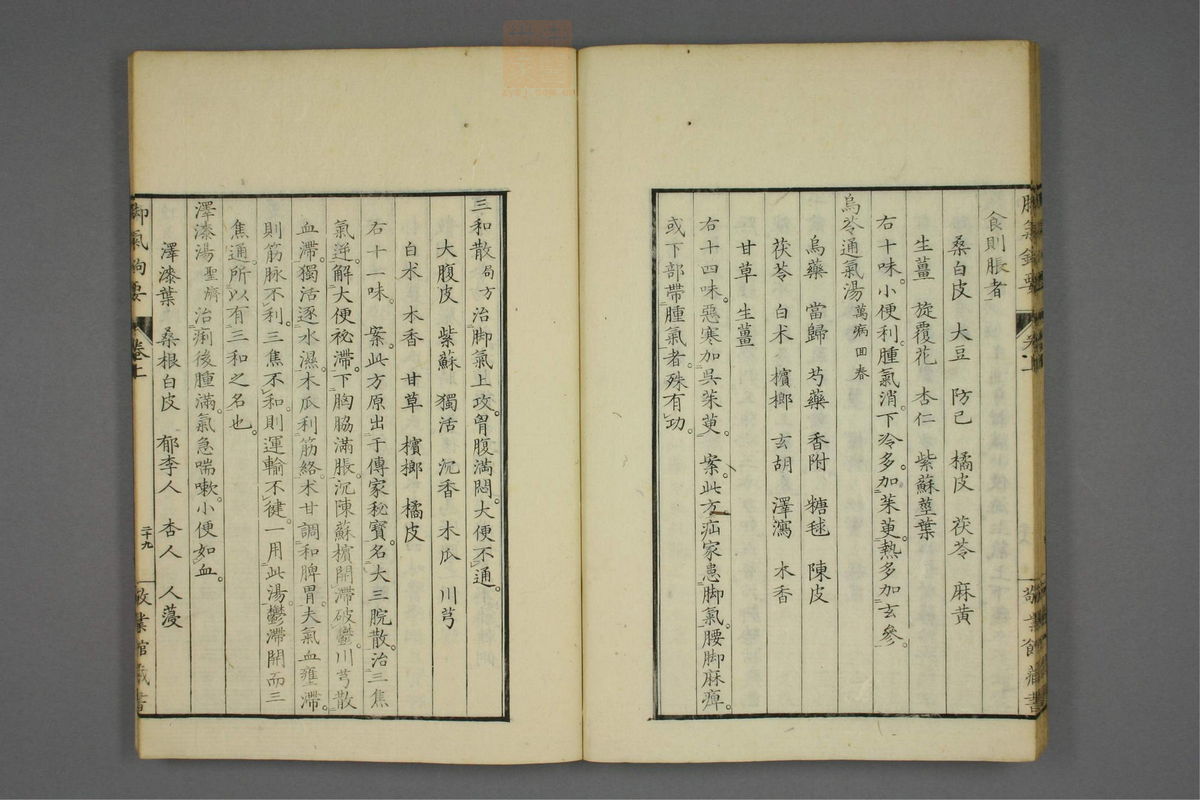 食則脹者
桑白皮 大豆 防已 橘皮 茯苓 麻黄
生薑 旋覆花 杏仁 紫蘇莖葉
右十味。小便利。腫氣消。下冷多。加茱萸。熱多加玄參。
烏苓通氣湯 萬病回春
烏藥 當歸 芍藥 香附 糖毬 陳皮
茯苓 白术 檳榔 玄胡 澤瀉 木香
甘草 生薑
右十四味。惡寒加吳茱萸。案。此方疝家患脚氣。腰脚麻痺。
或下部帶腫氣者。殊有功。
三和散 局方 治脚氣上攻。胷腹満悶。大便不通。
大腹皮 紫蘇 獨活 沉香 木瓜 川芎
白术 木香 甘草 檳榔 橘皮
右十一味。案。此方原出于傳家秘寶。名大三脘散。治三焦
氣逆。解大便祕滯。下胸脇滿脹。沉陳蘇檳開滯破鬱。川芎散
血滯。獨活逐水濕。木瓜利筋絡。术甘調和脾胃。夫氣血壅滯。
則筋脉不利。三焦不和。則運輸不健。一用此湯。鬱滯開而三
焦通。所以有三和之名也。
澤漆湯 聖濟 治痢後腫滿。氣急喘嗽。小便如血。
澤漆葉 桑根白皮 郁李人 杏人 人蓡
脚氣鉤要 卷上 二十九 敬業館藏書